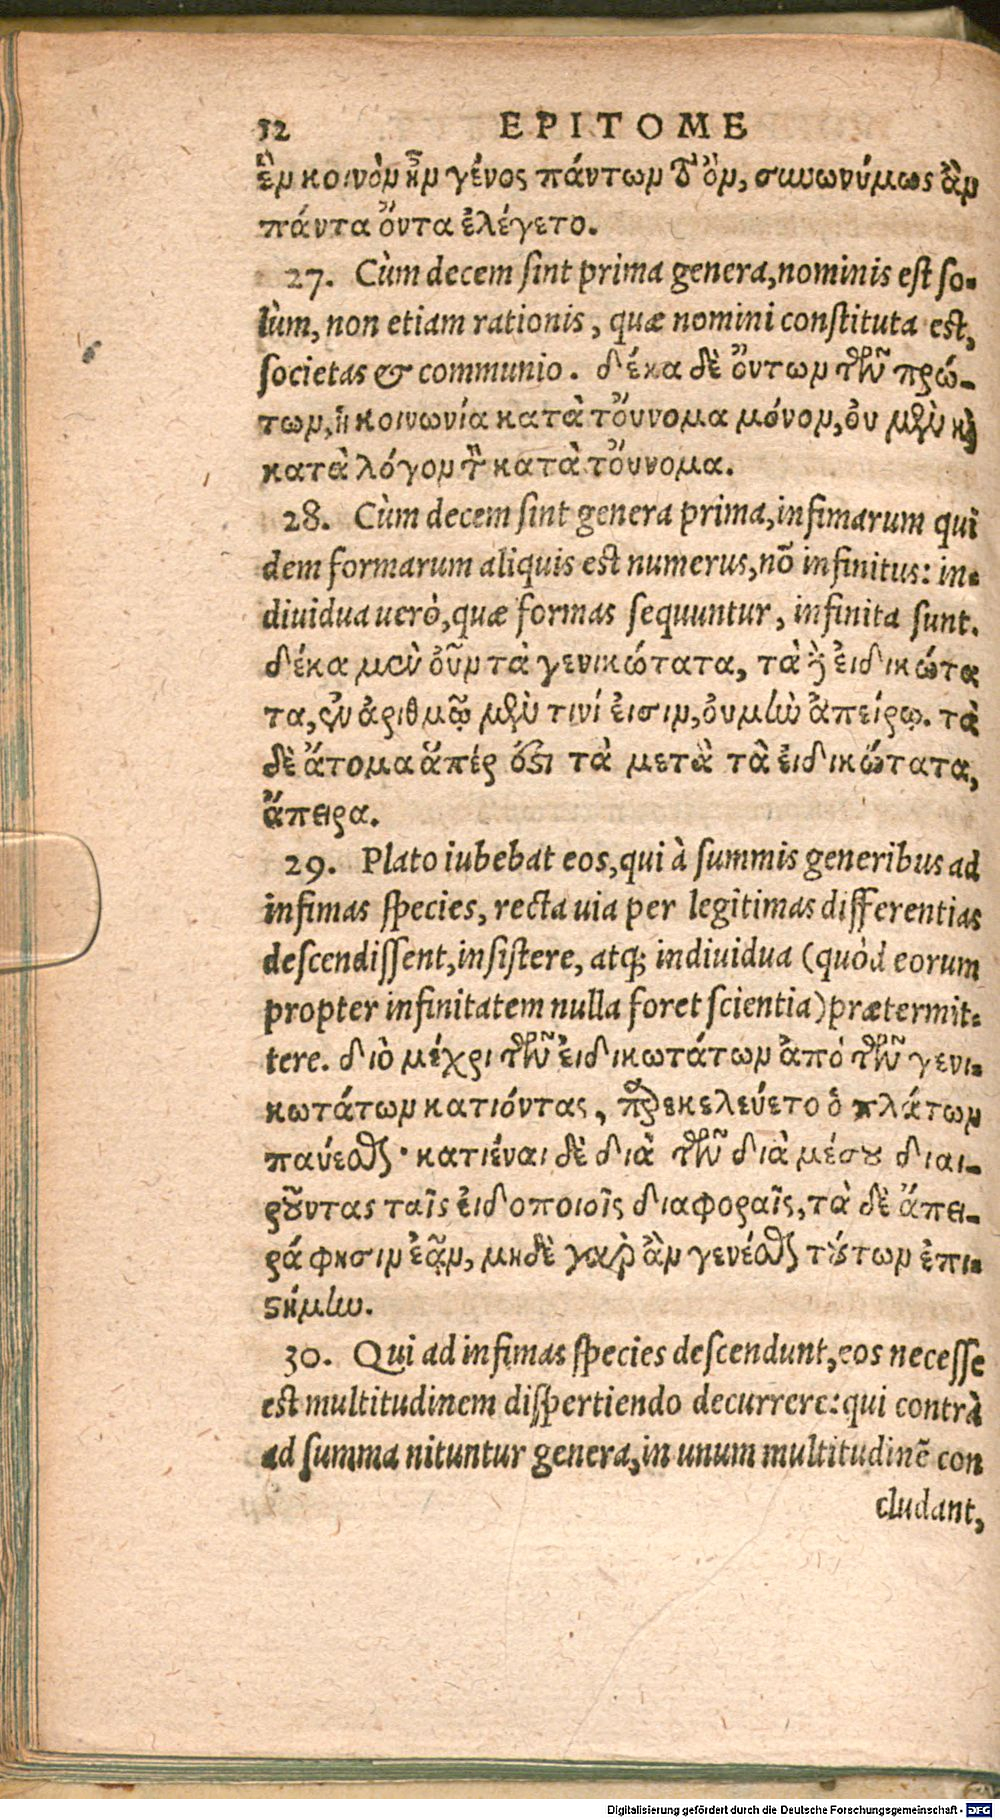 12 EPITOME
ἓν κοινὸν ἦν γένος πάντων τὸ ὄν, συνωνύμως ἂν
πάντα ὄντα ἐλέγετο.
27. Cùm decem sint prima genera, nominis est so-
lùm, non etiam rationis, quæ nomini constituta est,
societas & communio. δέκα δὲ ὄντων τῶν πρώ-
των, ἡ κοινωνία κατὰ τοὔνομα μόνον, οὐ μὴν καὶ
κατὰ λόγον τὸν κατὰ τοὔνομα.
28. Cùm decem sint genera prima, infimarum qui
dem formarum aliquis est numerus, nõ infinitus: in-
diuidua uerò, quæ formas sequuntur, infinita sunt.
δέκα μὲν οὖν τὰ γενικώτατα, τὰ δὲ εἰδικώτα
τα, ἐν ἀριθμῷ μὲν τινί εἰσιν, οὐ μὴν ἀπείρῳ. τὰ
δὲ ἄτομα ἅπέρ ὅστι τὰ μετὰ τὰ εἰδικώτατα,
ἄπειρα.
29. Plato iubebat eos, qui à summis generibus ad
infimas species, recta uia per legitimas differentias
descendissent, insistere, atq; indiuidua (quòd eorum
propter infinitatem nulla foret scientia) prætermit-
tere. διὸ μέχρι τῶν εἰδικωτάτων ἀπὸ τῶν γενι-
κωτάτων κατιόντας, παρεκελεύετο ὁ πλάτων
παύεσθαι· κατιέναι δὲ διὰ τῶν διὰ μέσου διαι-
ροῦντας ταῖς εἰδοποιοῖς διαφοραῖς, τὰ δὲ ἄπει-
ρά φησιν ἐᾷν, μηδὲ γὰρ ἂν γενέσθαι τούτων ἐπι-
στήμην.
30. Qui ad infimas species descendunt, eos necesse
est multitudinem dispertiendo decurrere: qui contrà
ad summa nituntur genera, in unum multitudinẽ con
cludant,
Digitalisierung gefördert durch die Deutsche Forschungsgemeinschaft - DFG